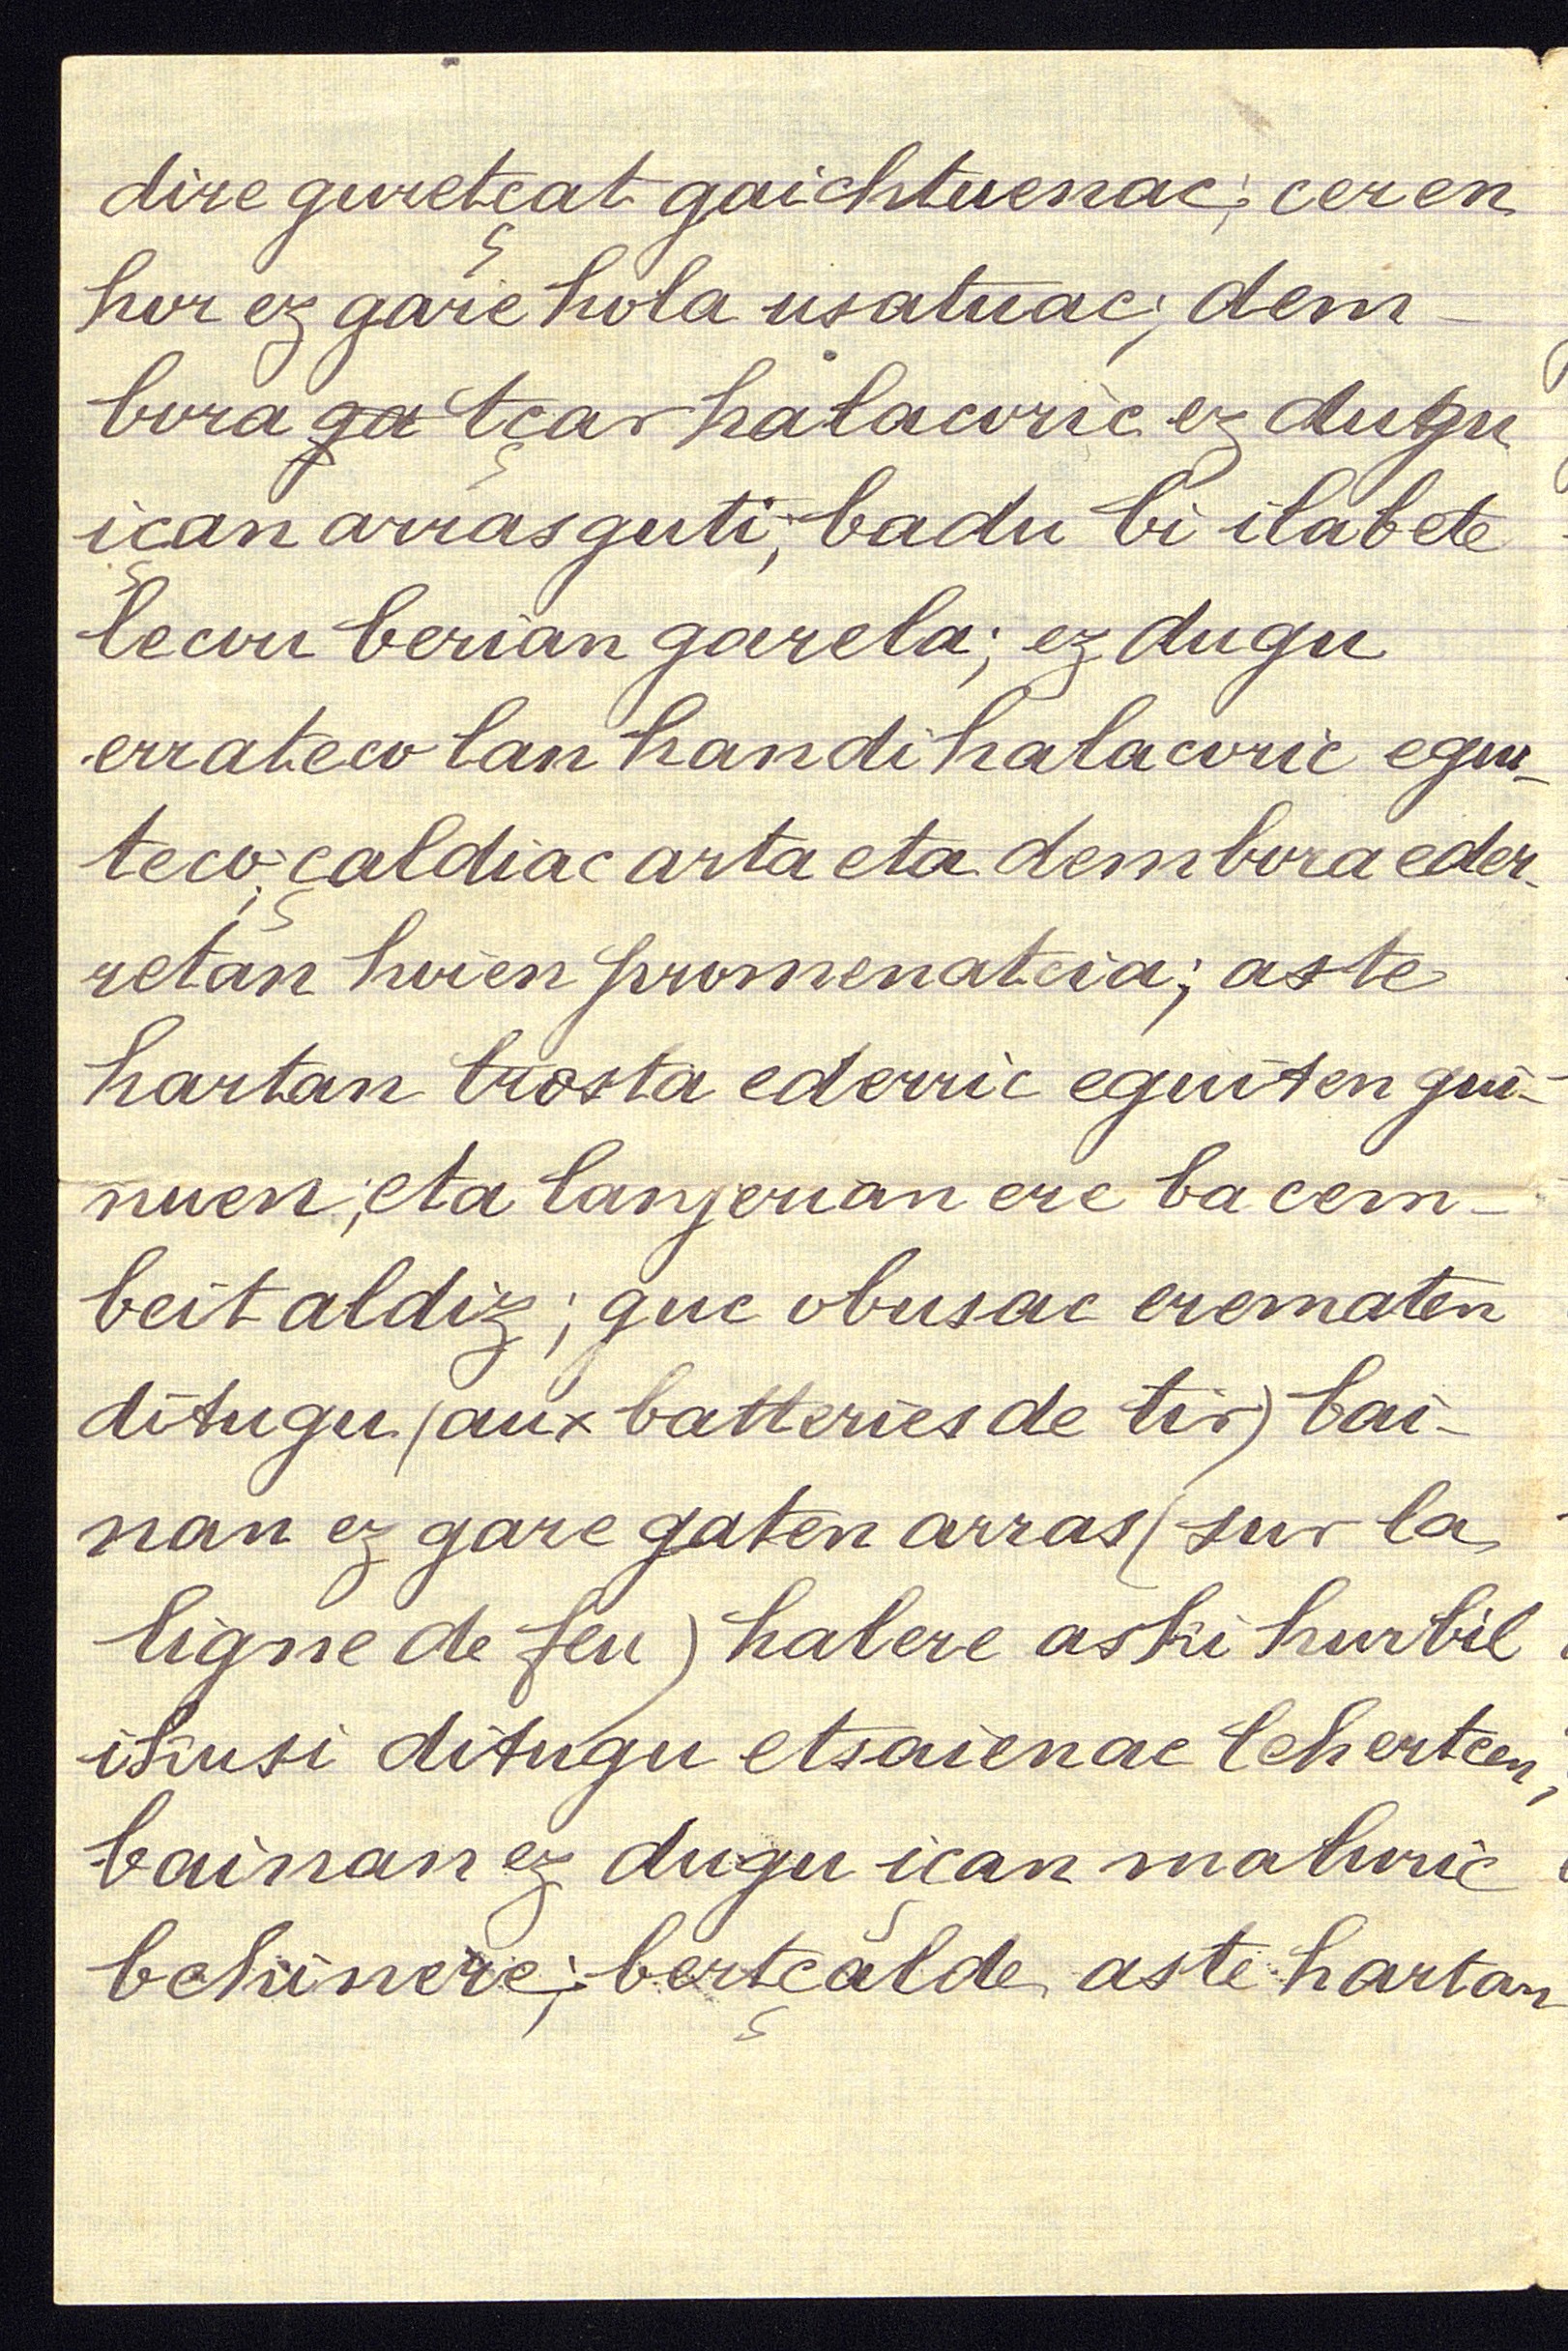 dire guretçat gaichtuenac; ceren
hor ez gare hola usatuac; dem-
bora ga tçar halacoric ez dugu
içan arras guti; badu bi ilabete
lecou berian garela; ez dugu
errateco lan handi halacoric egui-
teco; çaldiac arta eta dembora eder-
retan hoien promenatcia; aste
hartan trosta ederric eguiten gui-
nuen; eta lanjerian ere ba cem-
beit aldiz; guc obusac erematen
ditugu (aux batteries de tir) bai-
nan ez gare gaten arras (sur la
ligne de feu) halere aski hurbil
ikusi ditugu etsaienac leherteen,
bainan ez dugu içan maluric
behinere; bertçalde aste hartan